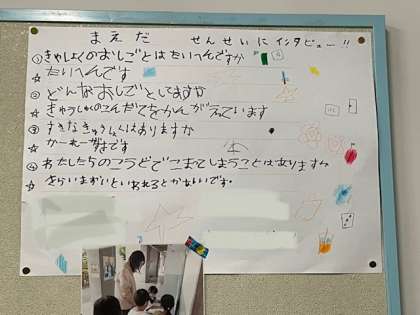 まえだ せんせいにインタビュー!!
①きゅしょくのおしごとはたいへんですか
☆たいへんです
②どんなおしごとしてますか
☆きゅうしょくのこんだてをかんがえています
③すきなきゅうしょくはありますか
☆かーれーずきです
④わたしたちのこうどでこまてしまうことはありますか
☆きらい